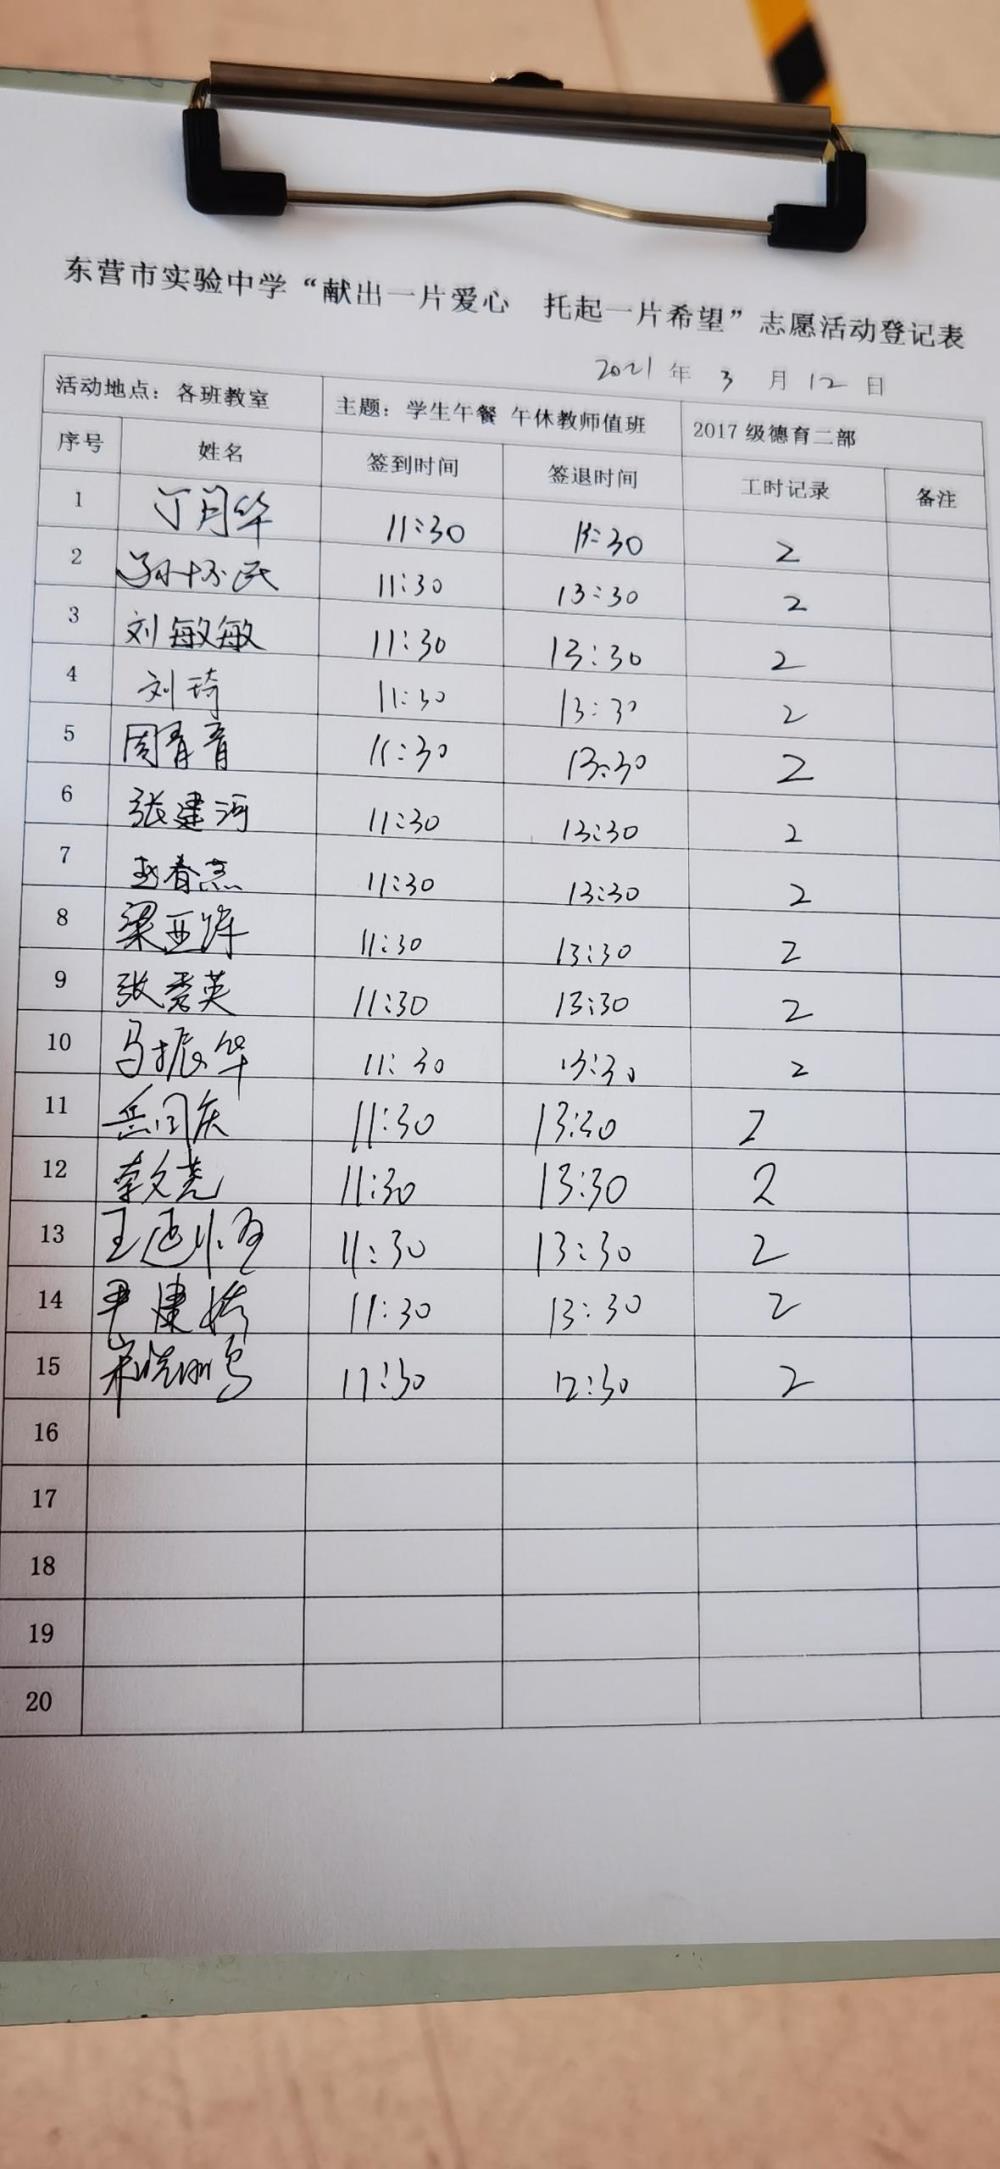 东营市实验中学“献出一片爱心 托起一片希望”志愿活动登记表
2021年 3 月 12 日
活动地点：各班教室 主题：学生午餐 午休教师值班 2017级德育二部
序号 姓名 签到时间 签退时间 工时记录 备注
1 丁月华 11:30 :30 2
2 孙怀民 11:30 13:30 2
3 刘敏敏 11:30 13:30 2
4 刘琦 11:30 13:30 2
5 周青青 11:30 13:30 2
6 张建河 11:30 13:30 2
7 赵春杰 11:30 13:30 2
8 梁亚 11:30 13:30 2
9 张秀英 11:30 13:30 2
10 马振华 11:30 13:30 2
11 岳同庆 11:30 13:30 2
12 李文亮 11:30 13:30 2
13 王 11:30 13:30 2
14 尹建 11:30 13:30 2
15 宋 11:30 12:30 2
16
17
18
19
20